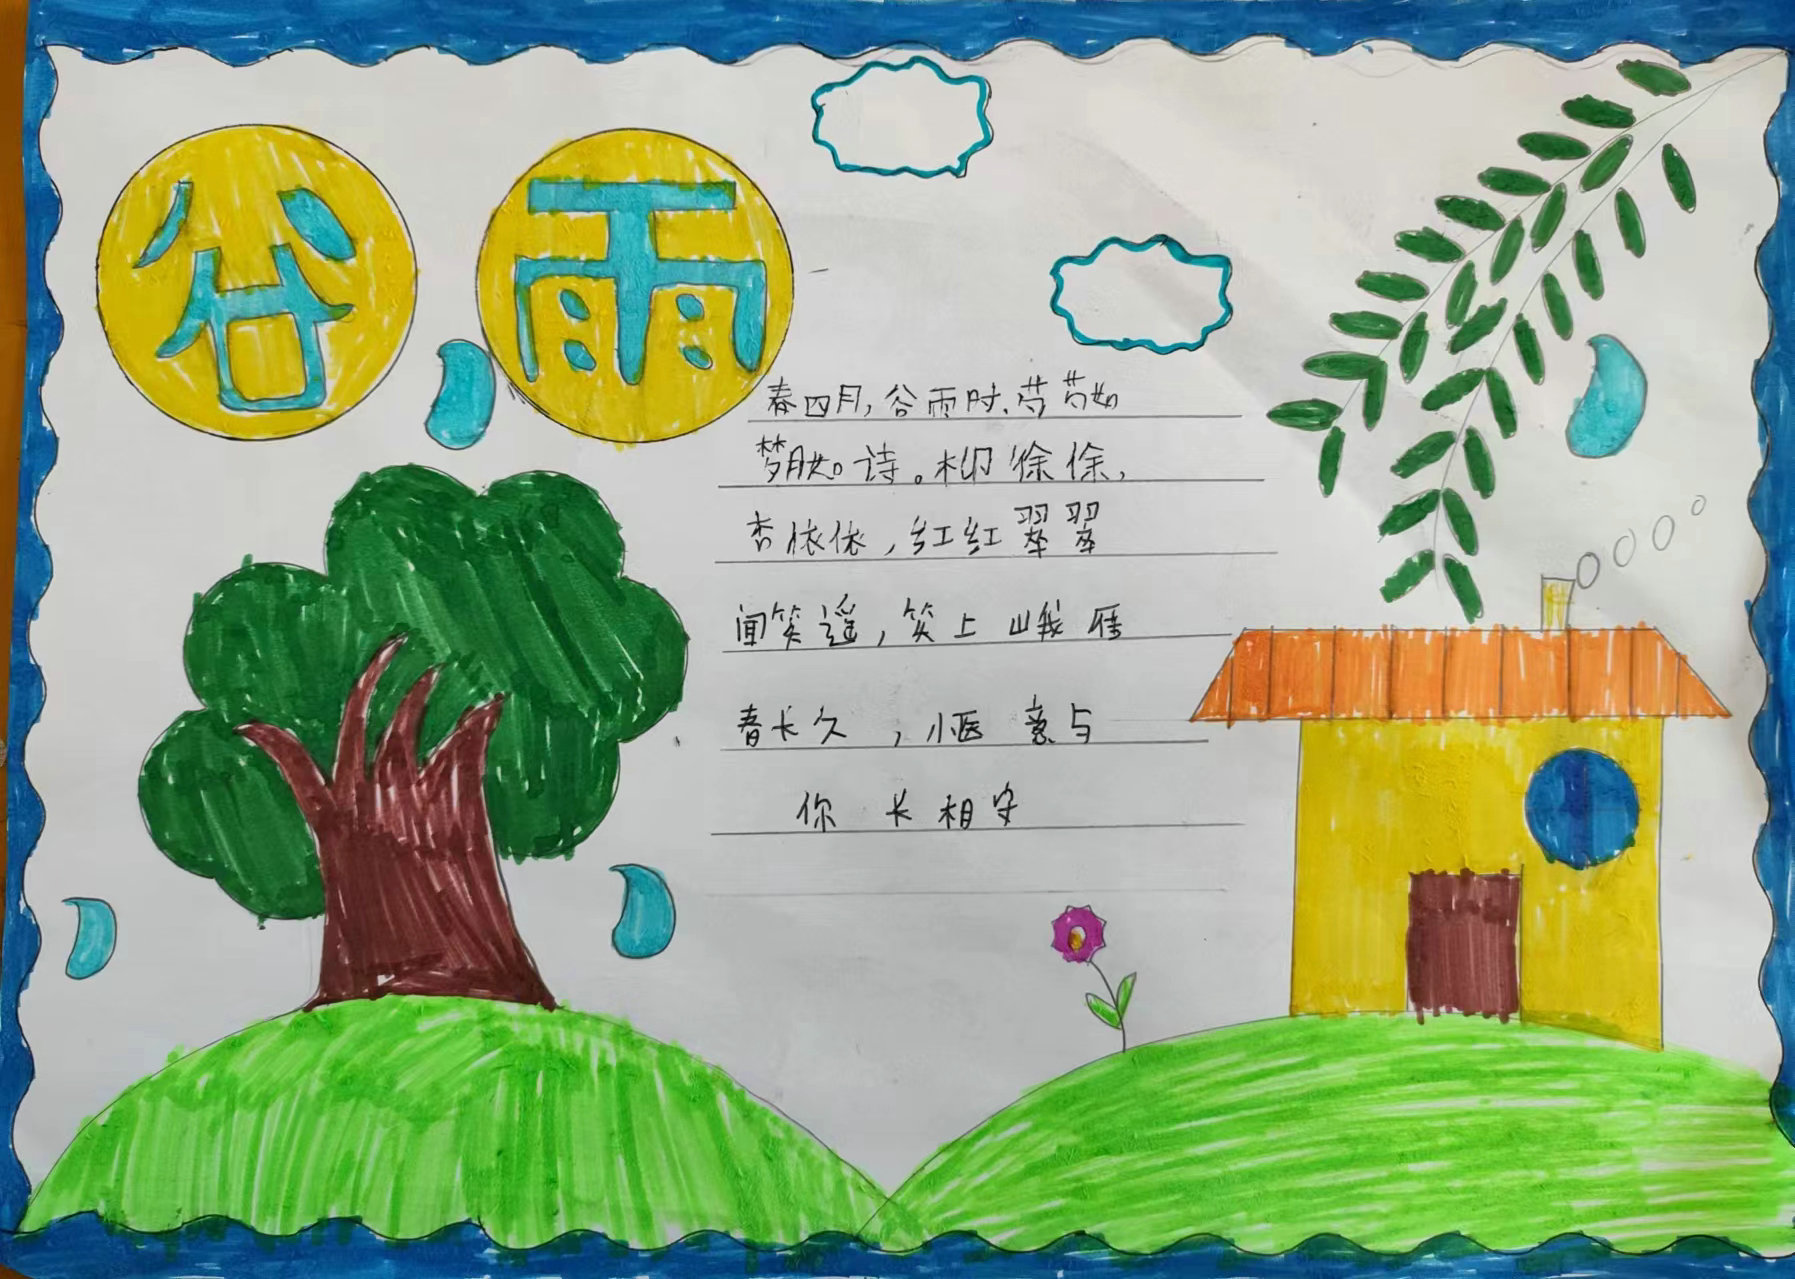 谷雨
春四月，谷雨时，芍芍如
梦月如诗。柳徐徐，
杏依依，红红翠翠
闻笑遥，笑上峨
春长久，意与
你长相守